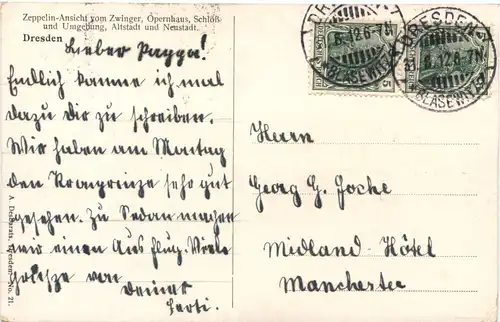 Zeppelin-Ansicht vom Zwinger, Opernhaus, Schloß
und Umgebung, Altstadt und Neustadt.
Dresden
Lieber Pappa!
Endlich komme ich mal
dazu Dir zu schreiben.
Wir haben am Montag
den Kronprinze sehr gut
gesehen. Zu Sedan machen
wir einen Ausflug. Viele
Grüsze von
Deiner
Herrn
Georg G. Joche
Midland-Hôtel
Manchester
DRESDEN
BLASEWITZ
DRESDEN
BLASEWITZ
5
A. Dresden-No. 21.